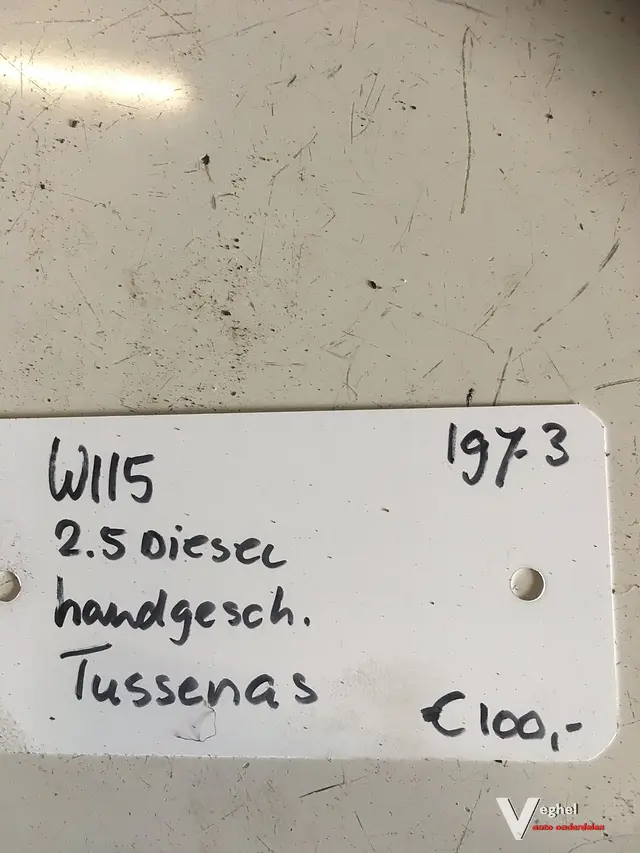 W115
1973
2.5 Diesel
handgesch.
Tussenas
€100,-
Veghel
auto onderdelen